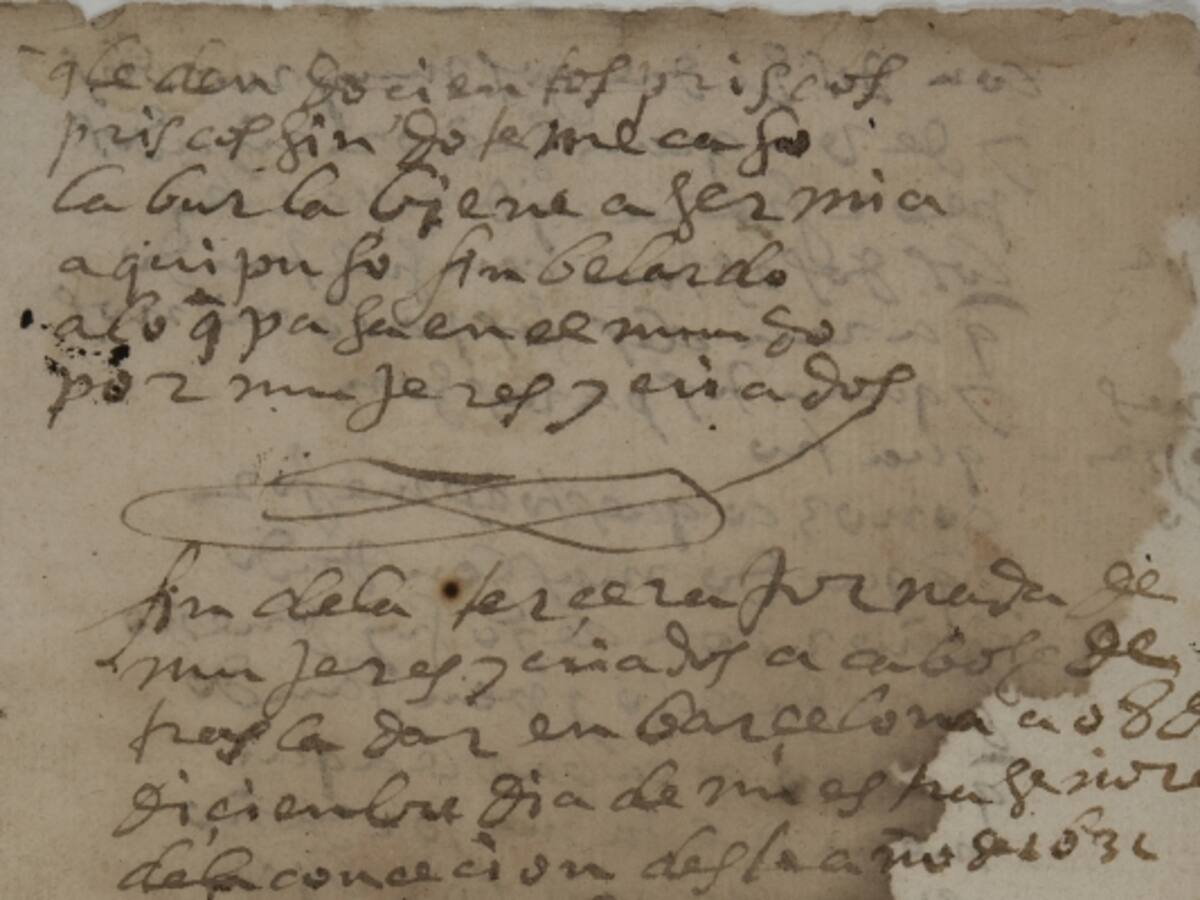 q le den docientos priscos
priscos sin dote me caso
la burla biene a ser mia
aqui puso fin belardo
a lo q̃ pasa en el mundo
por mujeres y criados
fin de la tercera jornada de
mujeres y criados acabose de
trasladar en barçelona a 8 de
diçiembre dia de nuestra señora
de la conceçion deste año de 1631